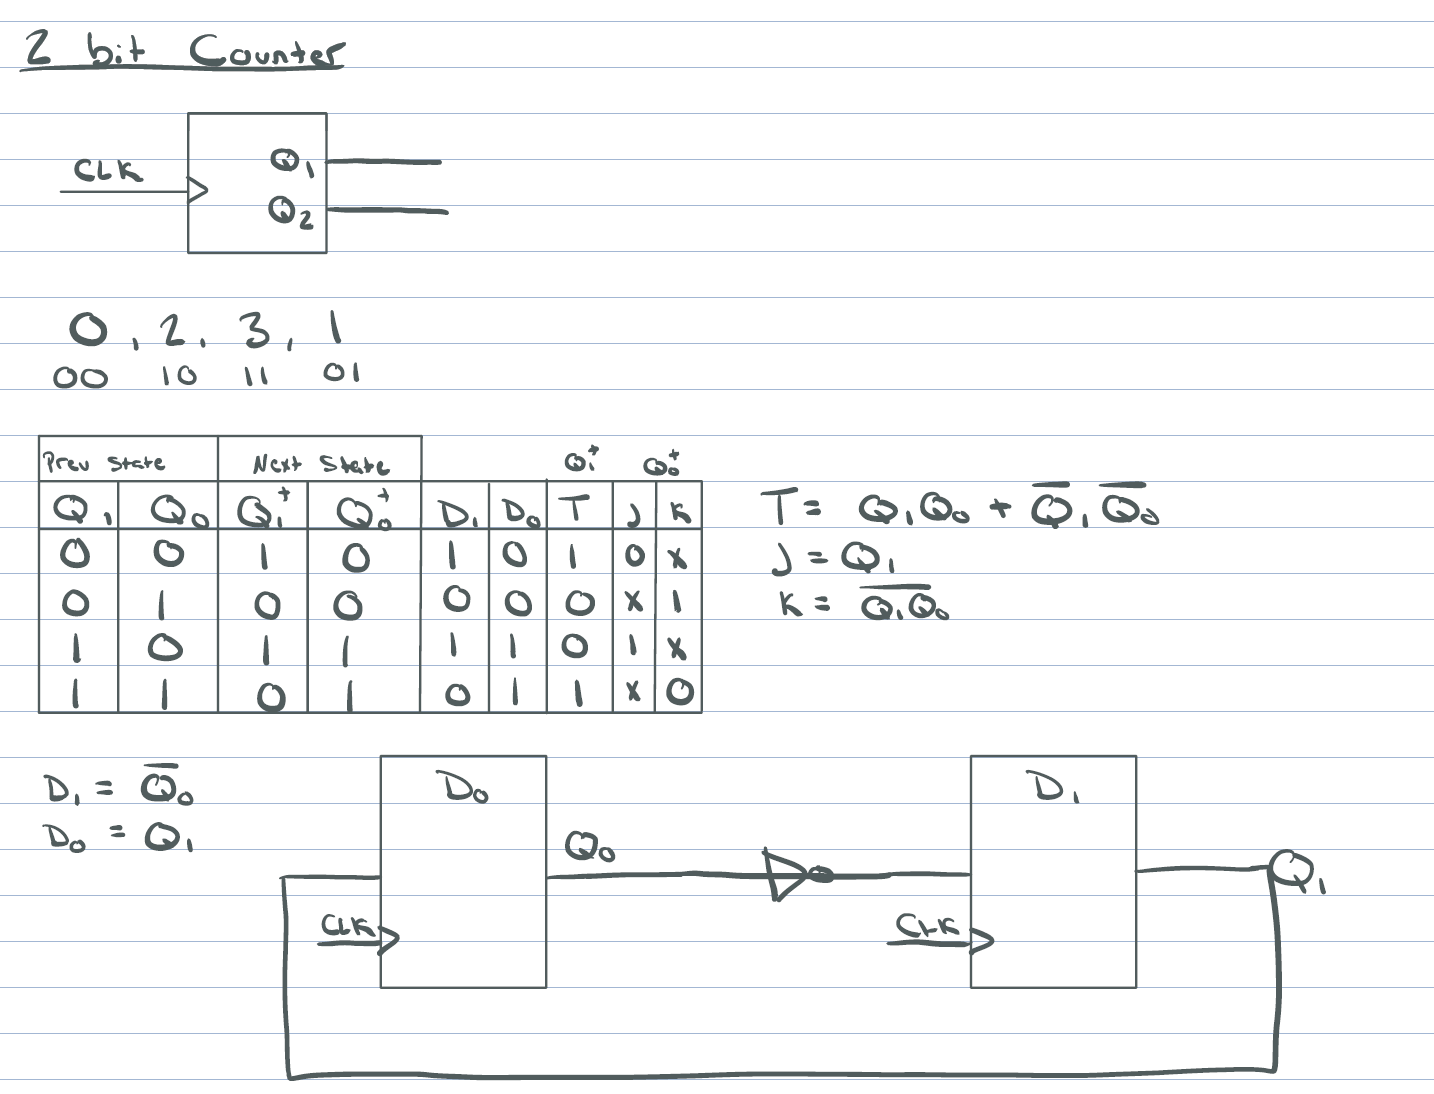 2 bit Counter
CLK
Q₁
Q₂
0, 2, 3, 1
00 10 11 01
Prev State Next State Q₁⁺ Q₀⁺
Q₁ Q₀ Q₁⁺ Q₀⁺ D₁ D₀ T J K
0 0 1 0 1 0 1 0 x
0 1 0 0 0 0 0 x 1
1 0 1 1 1 1 0 1 x
1 1 0 1 0 1 1 x 0
T = Q₁Q₀ + Q̅₁Q̅₀
J = Q₁
K = Q̅₁̅Q̅₀̅
D₁ = Q̅₀
D₀ = Q₁
D₀
Q₀
CLK
D₁
CLK
Q₁